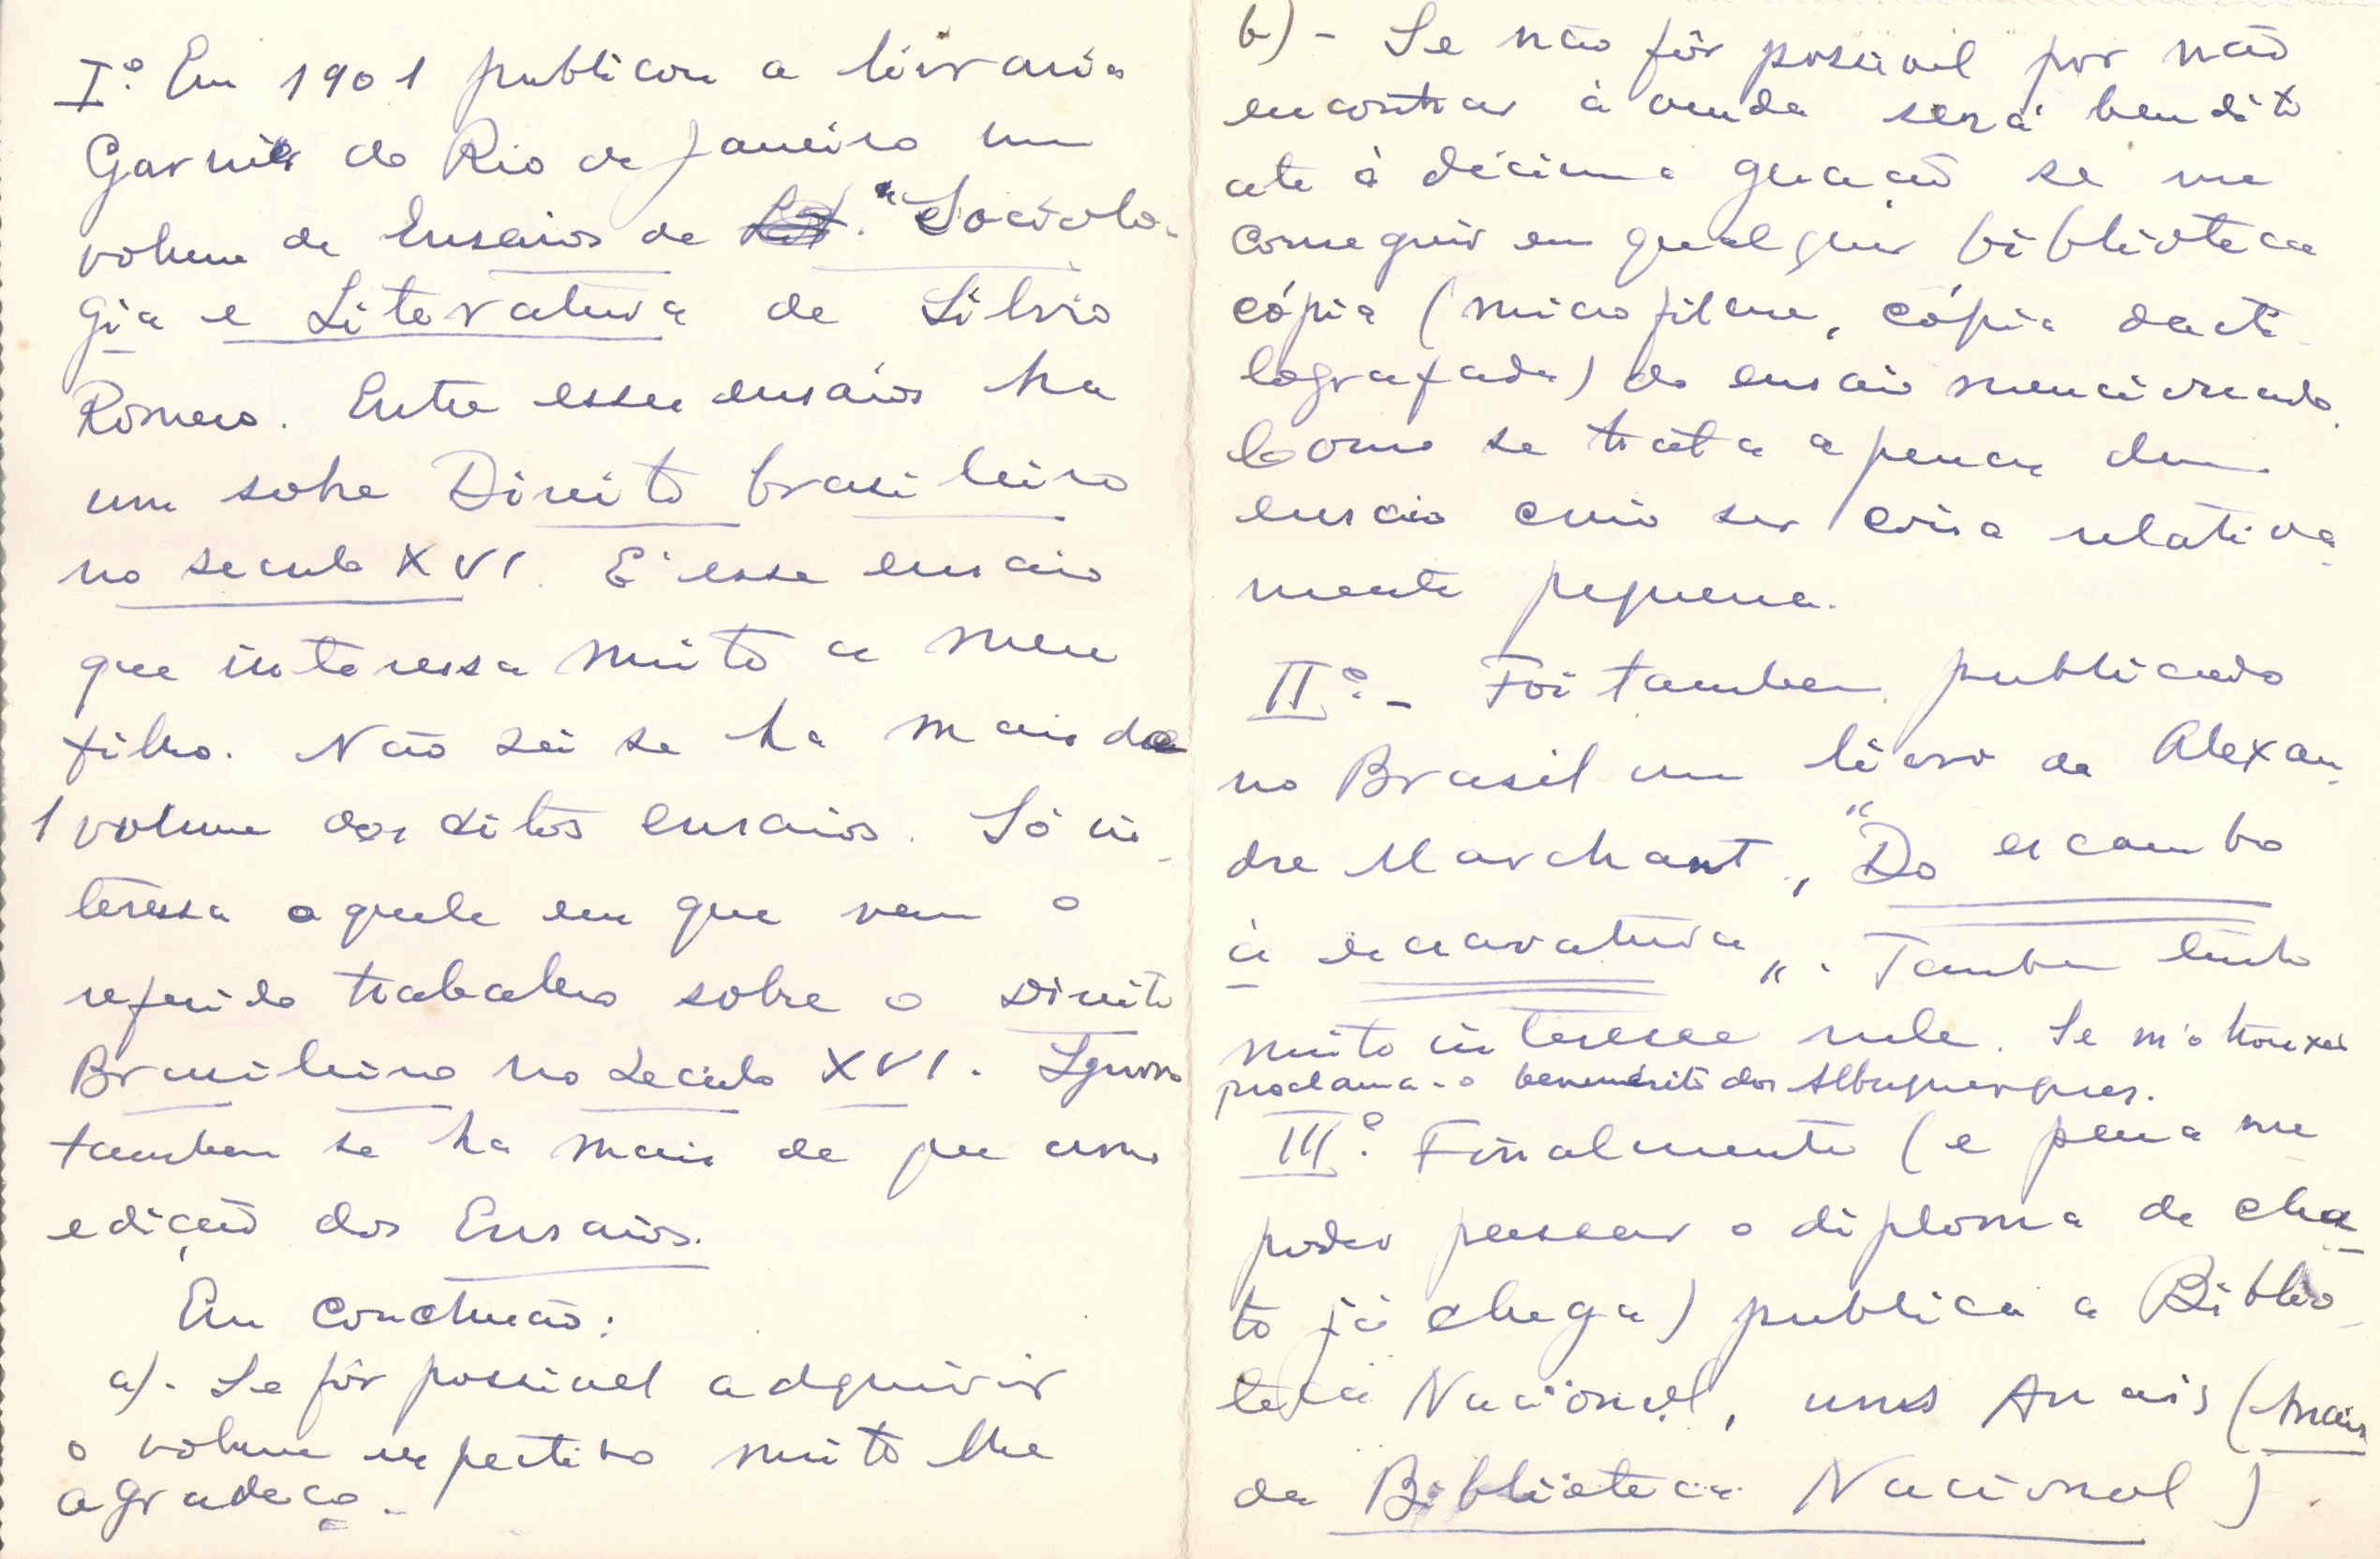 Iº. Em 1901 publicou a livraria
Garnier do Rio de Janeiro um
volume de Ensaios de Lit. "Sociolo-
gia e Literatura de Silvio
Romero. Entre esses ensaios ha
um sobre Direito brasileiro
no seculo XVI. E' esse ensaio
que interessa muito a meu
filho. Não sei se ha mais de
1 volume dos ditos ensaios. Só in-
teressa aquele em que vem o
referido trabalho sobre o Direito
Brasileiro no Seculo XVI. Ignoro
tambem se ha mais de que uma
edição dos Ensaios.
Em conclusão:
a)- Se fôr possivel adquirir
o volume respectivo muito lhe
agradeço.
b)- Se não fôr possivel por não
encontrar à venda será bendito
até à décima geração se me
conseguir em qualquer biblioteca
cópia (microfilme, cópia dacti-
lografada) do ensaio mencionado.
Como se trata apenas dum
ensaio creio ser coisa relativa-
mente pequena.
IIº.- Foi tambem publicado
no Brasil um livro de Alexan-
dre Marchant, "Do escambo
à escravatura". Tambem tenho
muito interesse nele. Se m'o trouxer
proclamá-o benemérito dos Albuquerques.
IIIº. Finalmente (e para me
poder passar o diploma de cha-
to já chega) publica a Biblio-
teca Nacional, uns Anais (Anais
da Biblioteca Nacional).